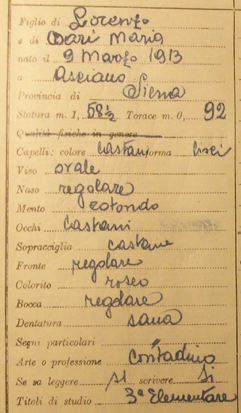 Figlio di Lorenzo
e di Bari Maria
nato il 9 Marzo 1913
a Asciano
Provincia di Siena
Statura m. 1, 58½ Torace m. 0, 92
Qualità fisiche in genere
Capelli: colore castani forma lisci
Viso ovale
Naso regolare
Mento rotondo
Occhi castani
Sopracciglia castane
Fronte regolare
Colorito roseo
Bocca regolare
Dentatura sana
Segni particolari
Arte o professione contadino
Se sa leggere si scrivere si
Titoli di studio 3ª Elementare